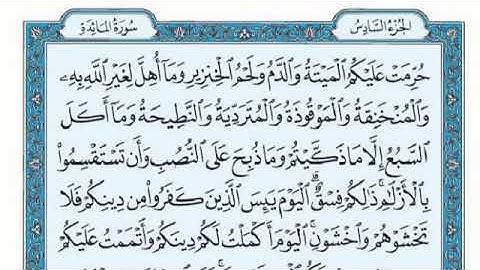 الجزء السادس
سورة المائدة
حُرِّمَتْ عَلَيْكُمُ الْمَيْتَةُ وَالدَّمُ وَلَحْمُ الْخِنزِيرِ وَمَا أُهِلَّ لِغَيْرِ اللَّهِ بِهِۦ
وَالْمُنْخَنِقَةُ وَالْمَوْقُوذَةُ وَالْمُتَرَدِّيَةُ وَالنَّطِيحَةُ وَمَا أَكَلَ
السَّبُعُ إِلَّا مَا ذَكَّيْتُمْ وَمَا ذُبِحَ عَلَى النُّصُبِ وَأَن تَسْتَقْسِمُوا
بِالْأَزْلَٰمِ ۚ ذَٰلِكُمْ فِسْقٌ ۗ الْيَوْمَ يَئِسَ الَّذِينَ كَفَرُوا مِن دِينِكُمْ فَلَا
تَخْشَوْهُمْ وَاخْشَوْنِ ۚ الْيَوْمَ أَكْمَلْتُ لَكُمْ دِينَكُمْ وَأَتْمَمْتُ عَلَيْكُمْ